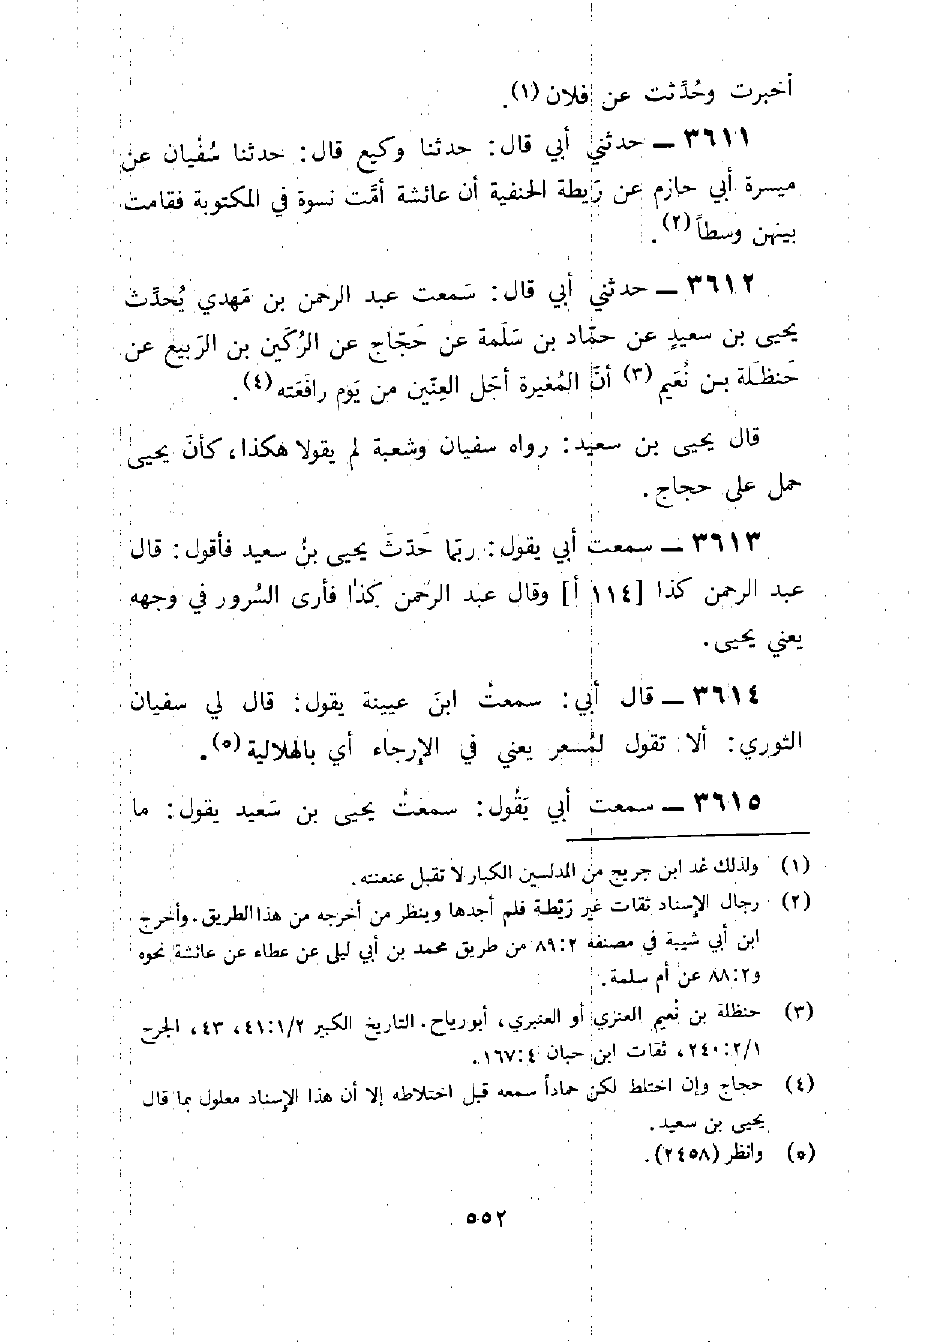 أخبرت وحُدِّثت عن فلان (١).
٣٦١١ ـ حدثني أبي قال: حدثنا وكيع قال: حدثنا سُفْيان عن
ميسرة أبي حازم عن رَيطة الحنفية أن عائشة أمَّت نسوة في المكتوبة فقامت
بينهن وسطاً (٢).
٣٦١٢ ـ حدثني أبي قال: سَمعت عبد الرحمن بن مَهدي يُحدِّث
يحيى بن سعيدٍ عن حمّاد بن سَلَمة عن حَجّاج عن الرُكَين بن الرَبيع عن
حَنظلَة بن نُعَيم (٣) أنَّ المُغيرة أجَل العِنّين من يَوم رافَعَته (٤).
قال يحيى بن سعيد: رواه سفيان وشعبة لم يقولا هكذا، كأنَ يحيى
حمل على حجاج.
٣٦١٣ ـ سمعت أبي يقول: ربّما حَدثَ يحيى بنُ سعيد فأقول: قال
عبد الرحمن كذا [١١٤ أ] وقال عبد الرحمن كذا فأرى السُرور في وجهه
يعني يحيى.
٣٦١٤ ـ قال أبي: سمعتُ ابنَ عيينة يقول: قال لي سفيان
الثوري: ألا تقول لمُسعر يعني في الإرجاء أي بالهلالية (٥).
٣٦١٥ ـ سمعت أبي يَقُول: سمعتُ يحيى بن سَعيد يقول: ما
(١) ولذلك عُد ابن جريج من المدلسين الكبار لا تقبل عنعنته.
(٢) رجال الإسناد ثقات غير رَيْطة فلم أجدها وينظر من أخرجه من هذا الطريق. وأخرج
ابن أبي شيبة في مصنفه ٨٩:٢ من طريق محمد بن أبي ليلى عن عطاء عن عائشة نحوه
و٨٨:٢ عن أم سلمة.
(٣) حنظلة بن نُعيم العنزي أو العنبري، أبو رياح. التاريخ الكبير ٤١:١/٢، ٤٣، الجرح
٢٤٠:٢/١، ثقات ابن حبان ١٦٧:٤.
(٤) حجاج وإن اختلط لكن حماداً سمعه قبل اختلاطه إلا أن هذا الإسناد معلول بما قال
يحيى بن سعيد.
(٥) وانظر (٢٤٥٨).
٥٥٢